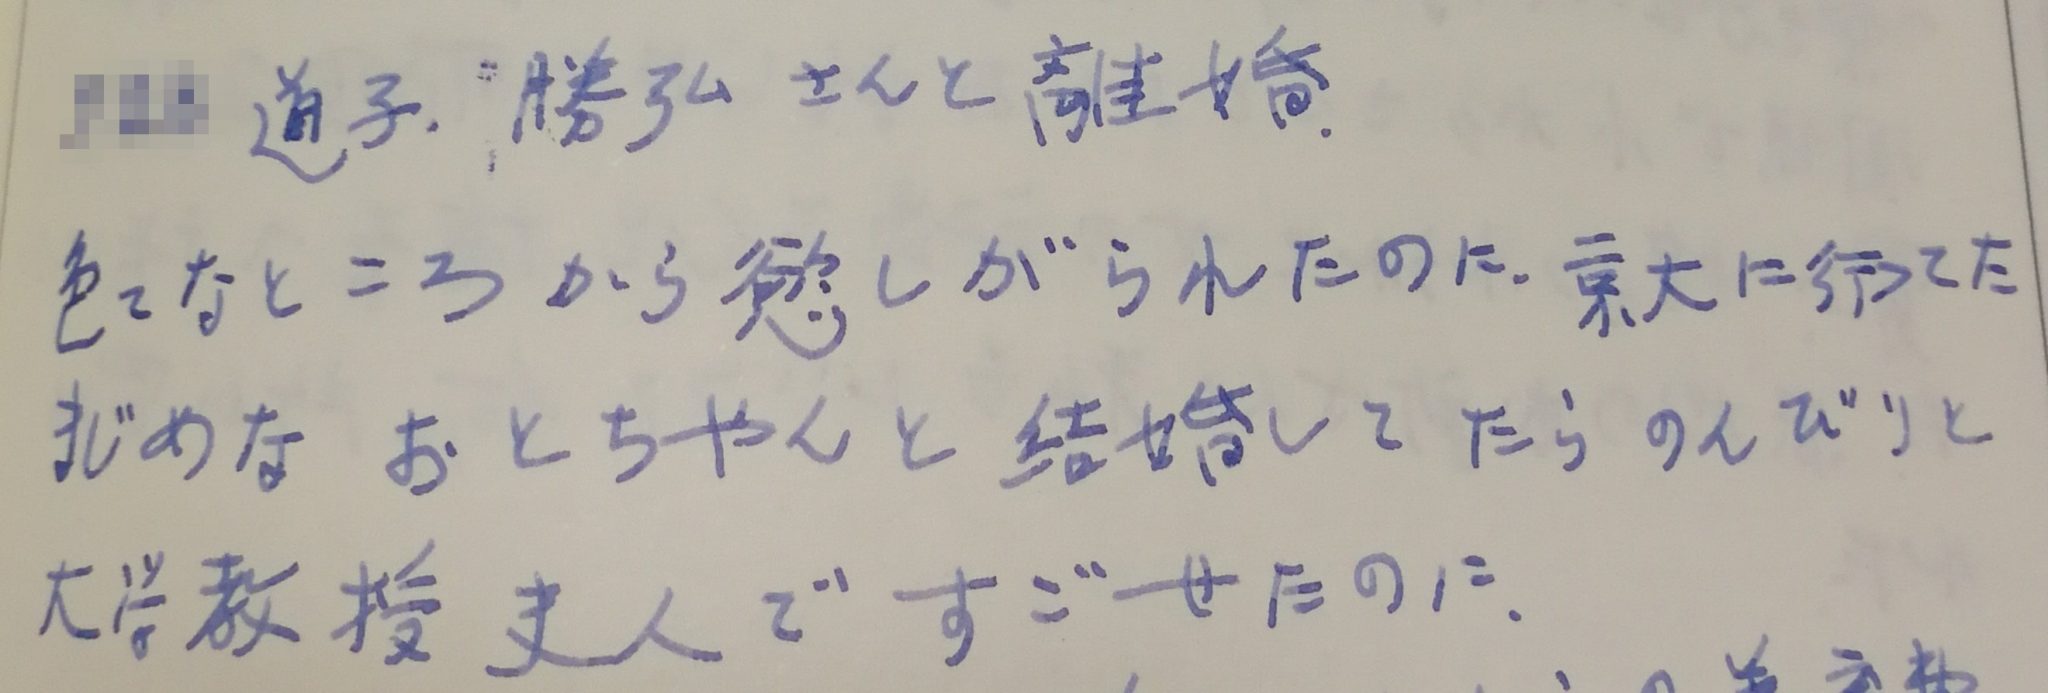 道子. 勝弘さんと離婚.
色てなところから慾しがられたのに. 京大に行ってた
まじめな おとちゃんと結婚してたらのんびりと
大学教授夫人ですごせたのに.